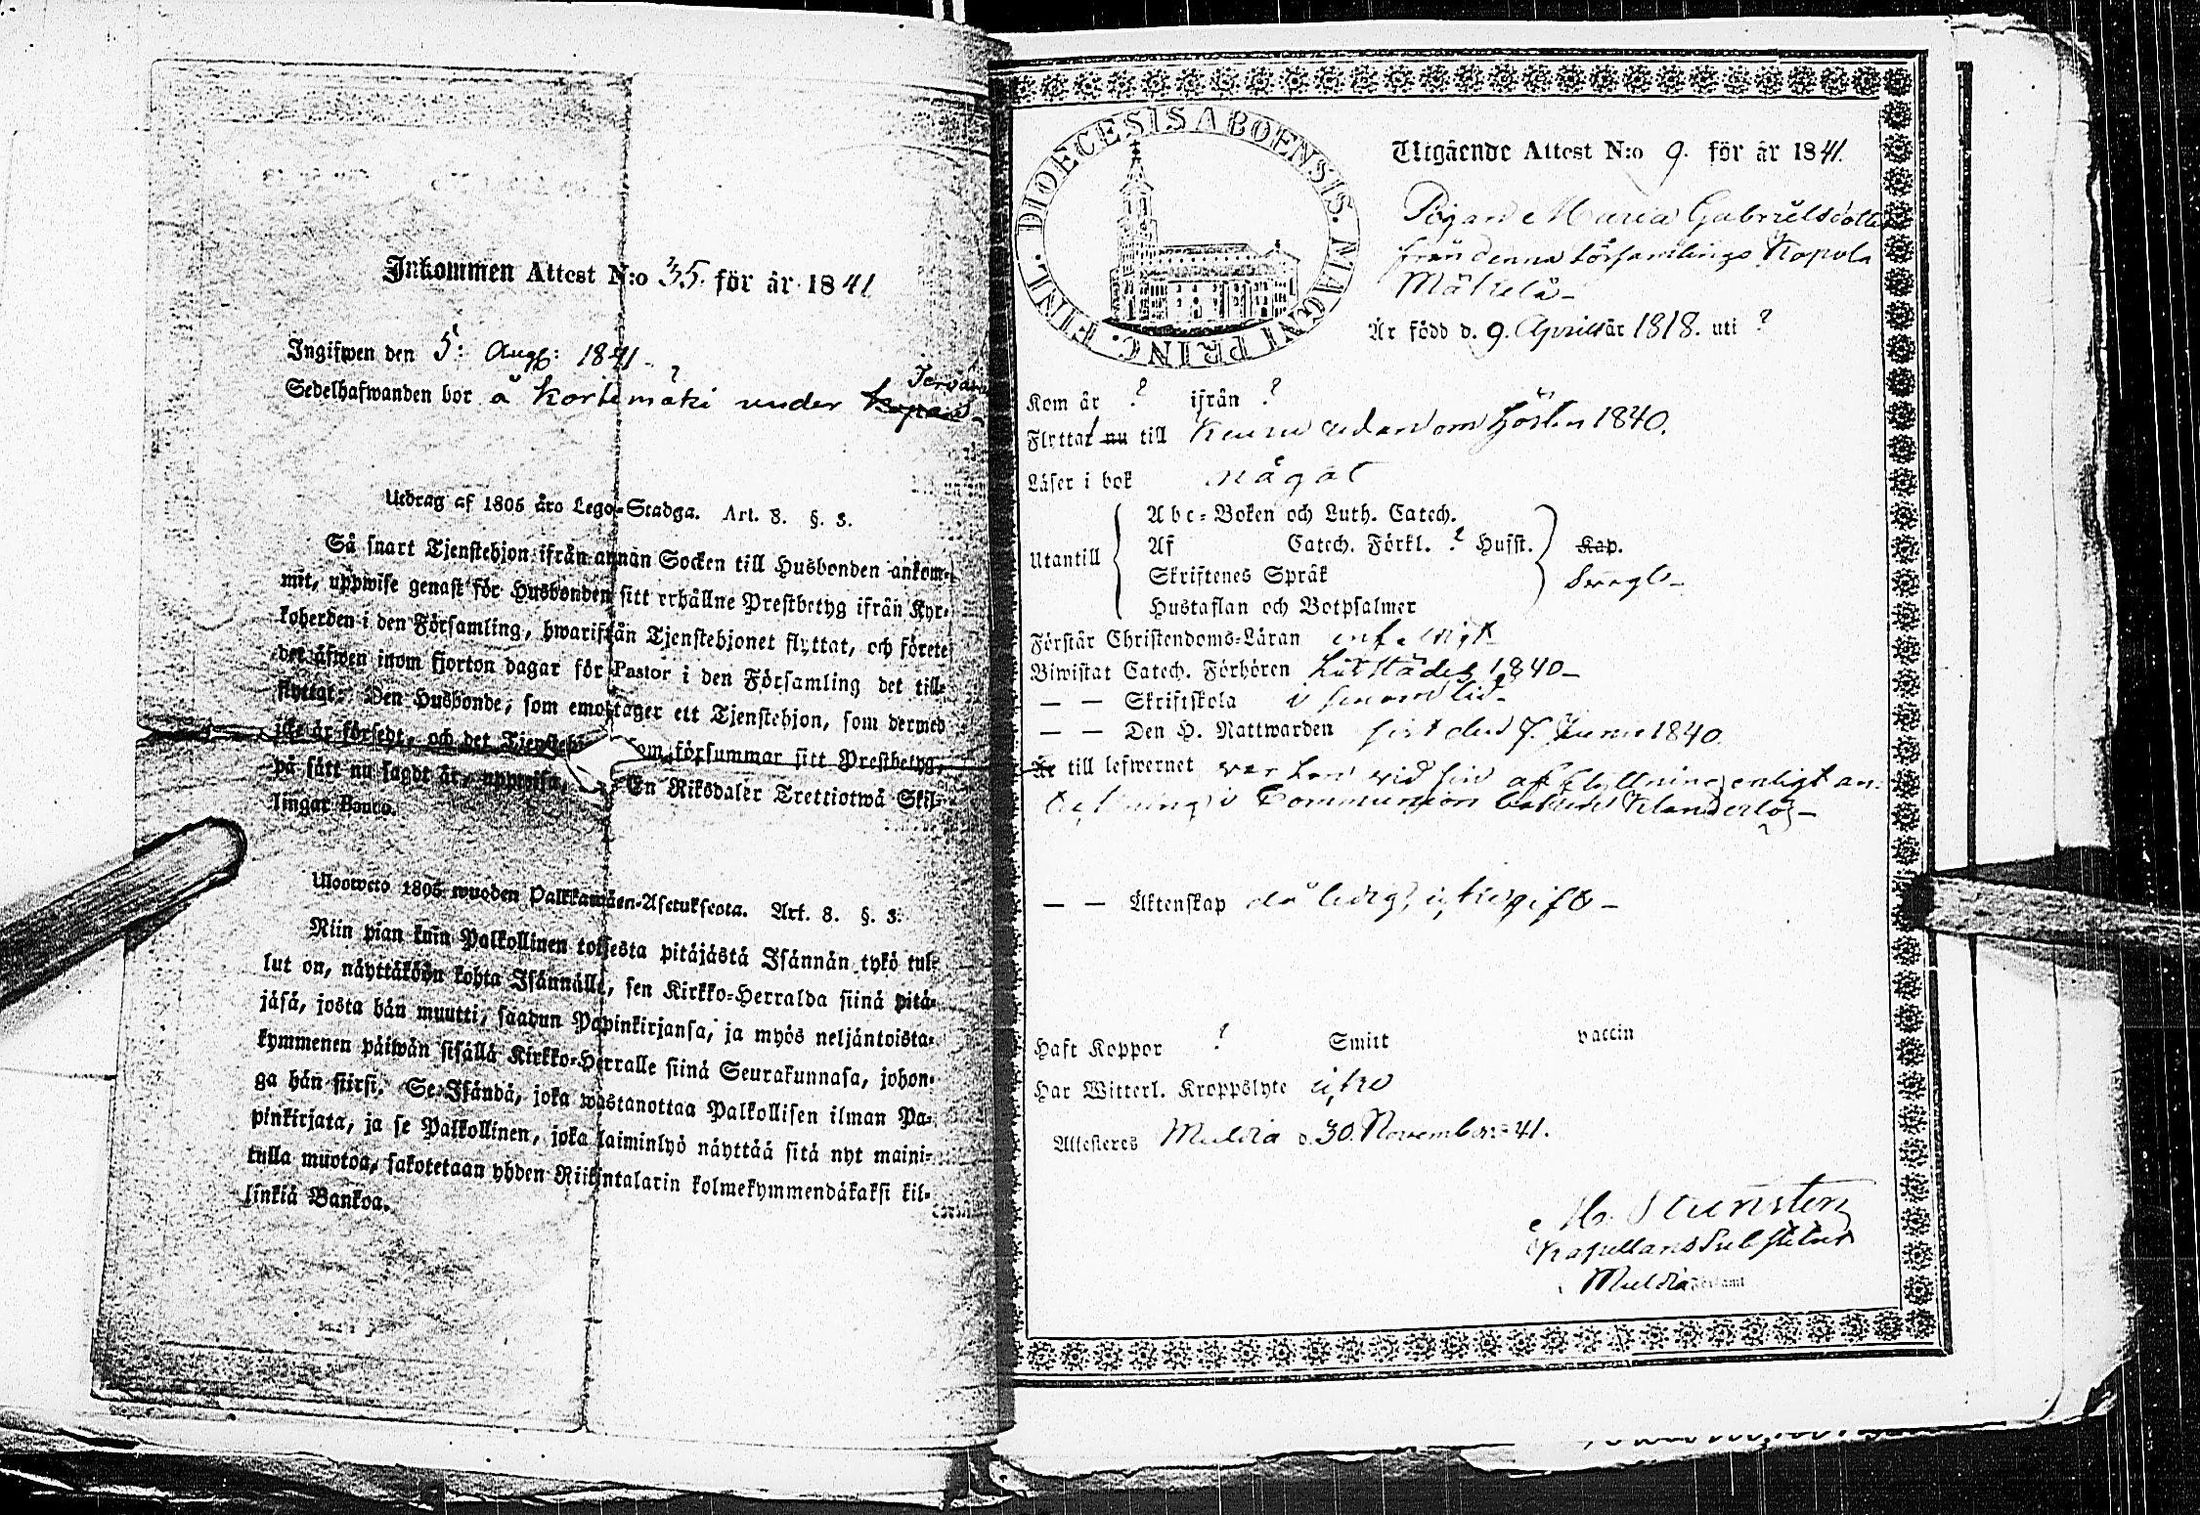 Inkommen Attest N:o 35. för år 1841
Ingifwen den 5: Aug: 1841
Sedelhafwanden bor å Kortemäki under
Utdrag af 1805 års Lego-Stadga. Art. 8. §. 3.
Så snart Tjenstehjon ifrån annan Socken till Husbonden ankom-
mit, uppwise genast för Husbonden sitt erhållne Prestbetyg ifrån Kyr-
koherden i den Församling, hwarifrån Tjenstehjonet flyttat, och förete
det äfwen inom fjorton dagar för Pastor i den Församling det till-
flyttat. Den Husbonde, som emottager ett Tjenstehjon, som dermed
icke är försedt, och det som försummar sitt Prestbetyg,
på sätt nu sagdt är, uppwisa, En Riksdaler Trettiotwå Skil-
lingar Banco.
Ulosweto 1805 wuoden Palkkawäen-Asetuksesta. Art. 8. §. 3.
Niin pian kuin Palkollinen toisesta pitäjästä Isännän tykö tul-
lut on, näyttäköön kohta Isännälle, sen Kirkko-Herralda siinä pitä-
jäsä, josta hän muutti, saadun Papinkirjansa, ja myös neljäntoista-
kymmenen päiwän sisällä Kirkko-Herralle siinä Seurakunnasa, johon-
ga hän siirsi. Se Isändä, joka wastanottaa Palkollisen ilman Pa-
pinkirjata, ja se Palkollinen, joka laiminlyö näyttää sitä nyt maini-
tulla muotoa, sakotetaan yhden Riikintalarin kolmekymmendäkaksi kil-
linkiä Bankoa.
DIOECESIS ABOENSIS. MAGNI PRINC. FINL.
Utgående Attest N:o 9. för år 1841.
Pigan Maria Gabrielsdotter
från denna församlings Kopola
Mäkelä
Är född d. 9. April år 1818. uti ?
Kom år ? ifrån ?
Flyttat nu till Keuru redan om hösten 1840.
Läser i bok något
Utantill
Abc-Boken och Luth. Catech.
Af Catech. Förkl. ? Hufst.
Skriftenes Språk
Hustaflan och Botpsalmer
Kap.
Swagt
Förstår Christendoms-Läran
Biwistat Catech. Förhören 1840
— — Skriftskola i sinom tid
— — Den H. Nattwarden sist den 7. Junii 1840.
Är till lefwernet war hon wid sin afflyttning enligt an-
teckning i Communion boken klanderlös
— — Äktenskap då ledig, ej trogift
Haft Koppor ? Smitt vaccin
Har Witterl. Kroppslyte ej
Attesteres Muldia d. 30. November 41.
Kapellans Substitut
Muldia Församl